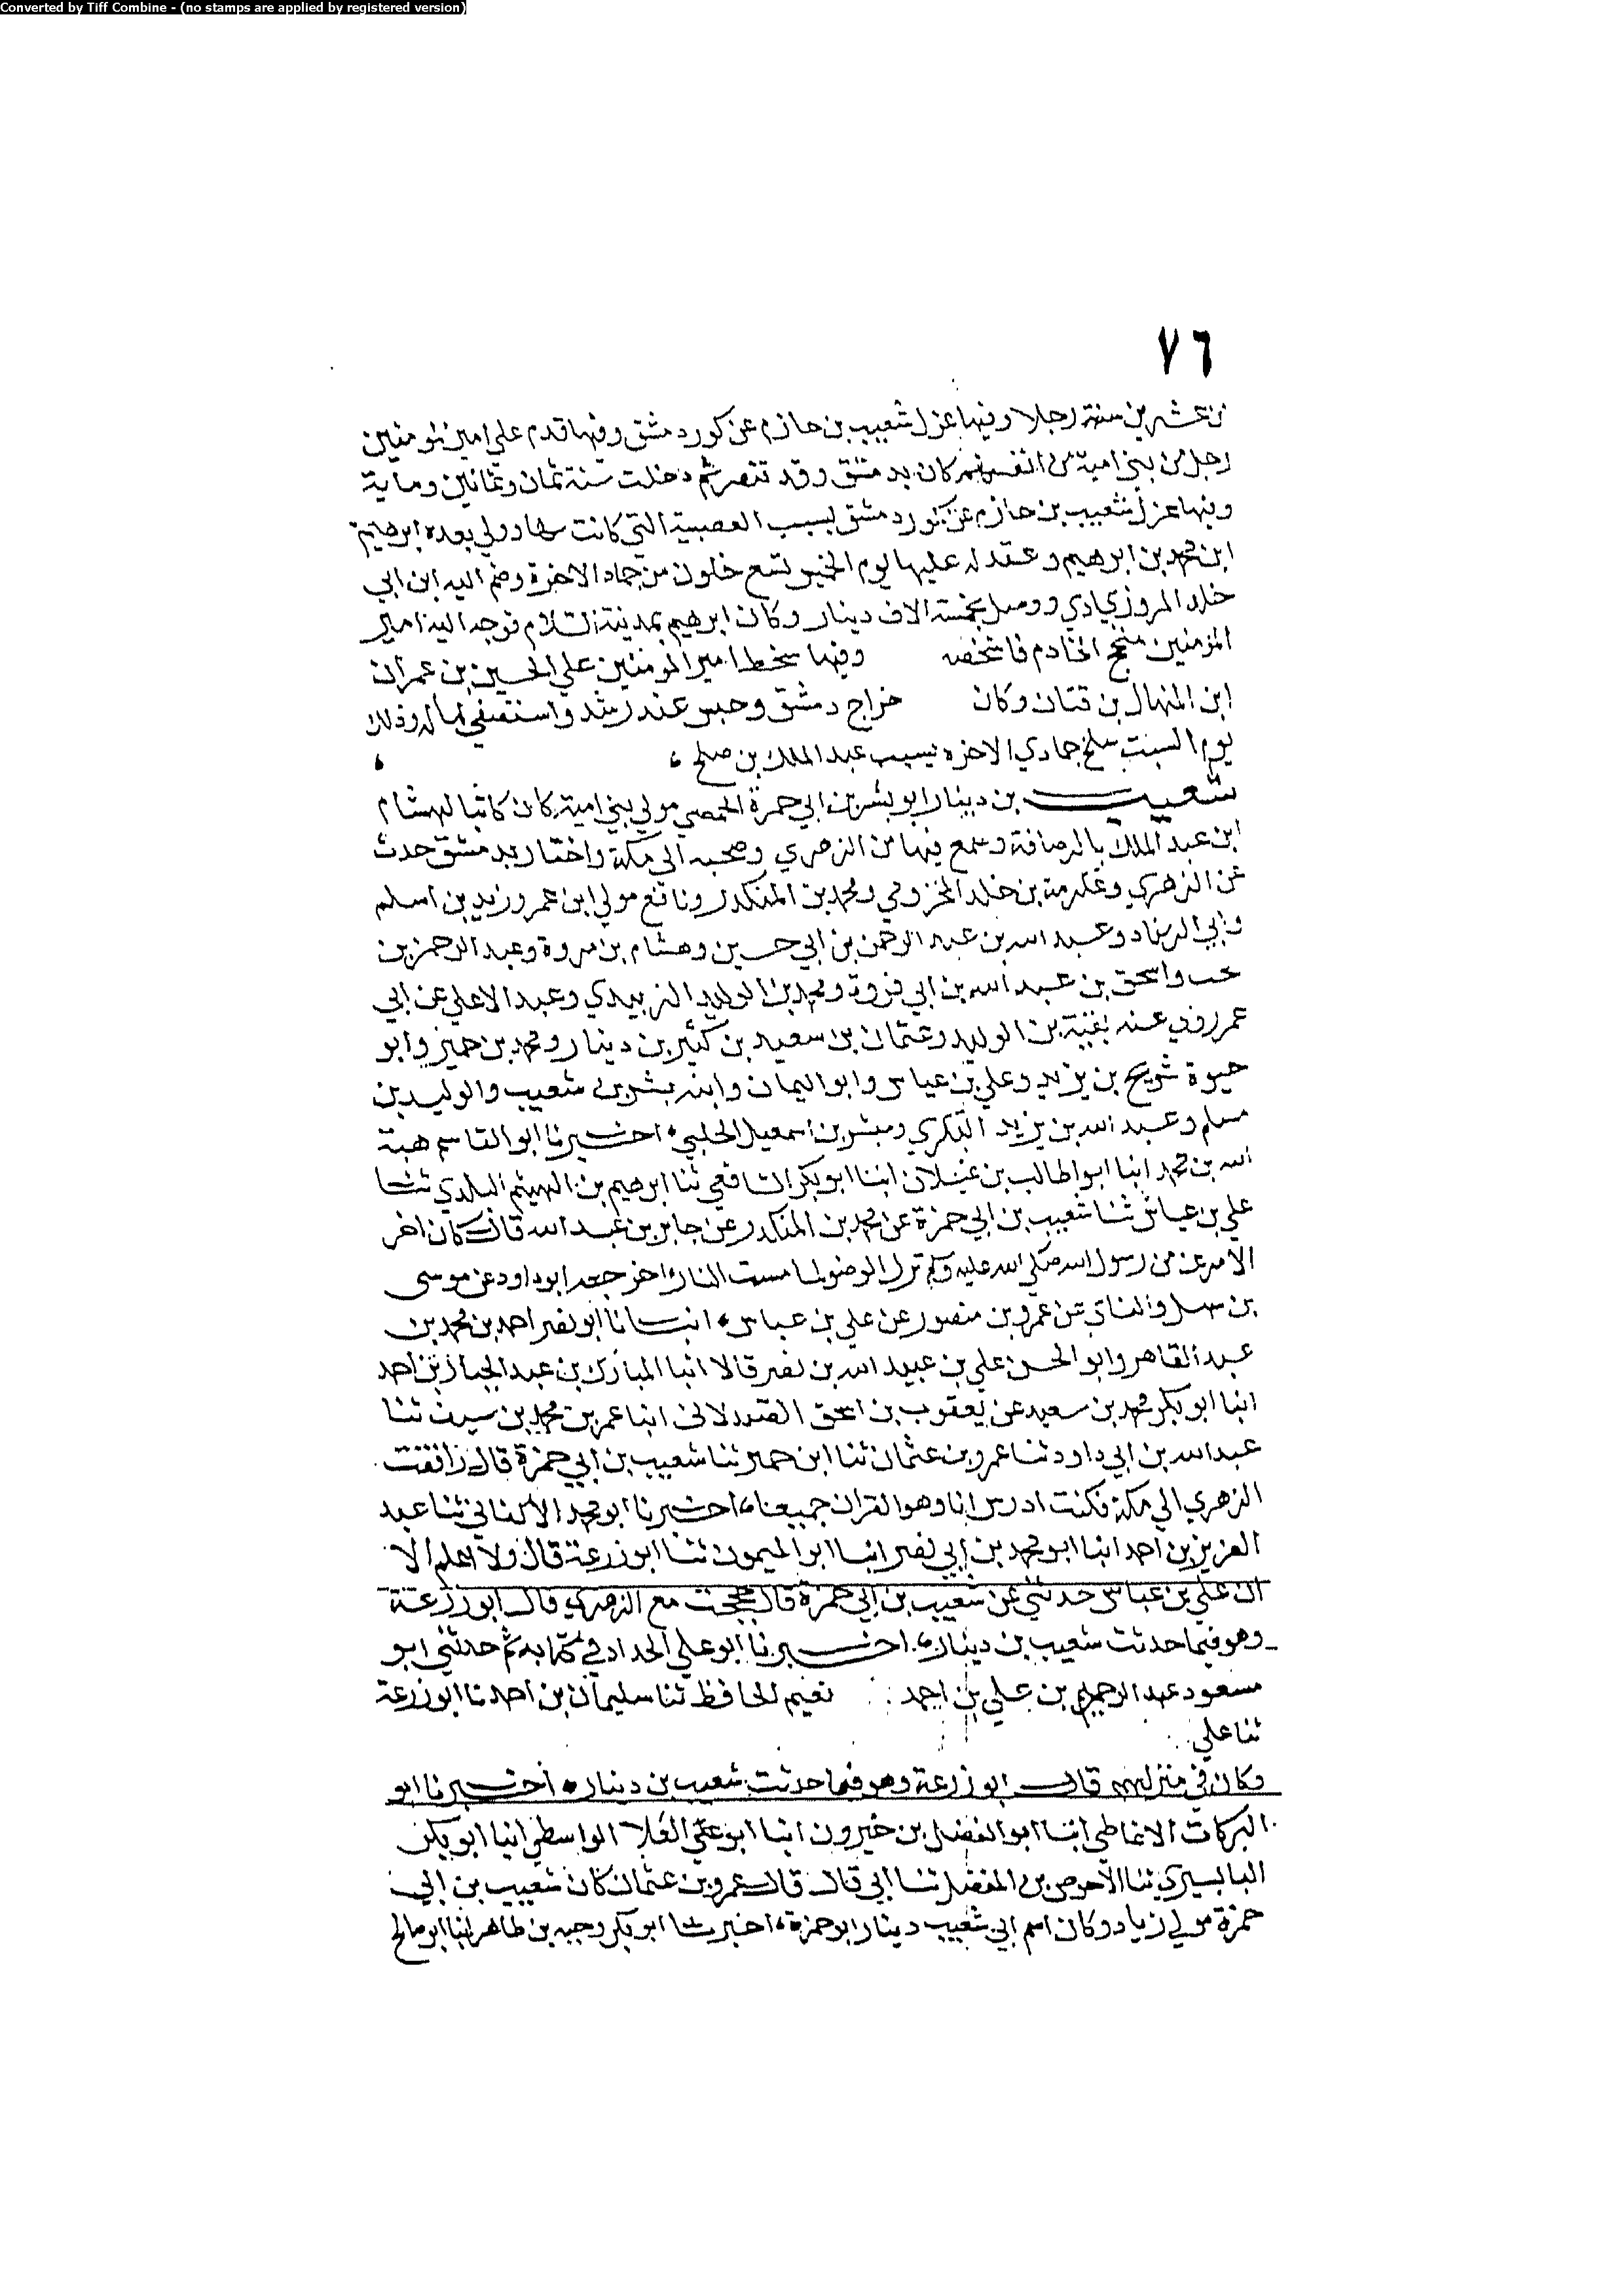 Converted by Tiff Combine - (no stamps are applied by registered version)
٧٦
عشرين سنة رجلا وفيها عزل شعيب بن حازم عن كور دمشق وفيها قدم علي امير المومنين
رجل من بني امية من انفسهم كان بدمشق وقد تنصر ثم دخلت سنة ثمان وثمانين وماية
وفيها عزل شعيب بن حازم عن كور دمشق بسبب العصبية التي كانت بها وولي بعده ابرهيم
ابن محمد بن ابرهيم وعقد له عليها يوم الخميس لتسع خلون من جماد الاخرة وضم اليه ابن ابي
خلد المروزي ووصل بخمسة الاف دينار وكان ابرهيم بمدينة السلام فوجه اليه امير
المومنين الخادم فاشخصه وفيها سخط امير المومنين علي الحسين بن عمران
ابن المنهال بن قتان وكان خراج دمشق وحبس عند رشد واستصفي ماله وذلك
يوم السبت سلخ جمادي الاخره بسبب عبد الملك بن صلح
شعيب بن دينار ابو بشر بن ابي حمزة الحمصي مولي بني امية كان كاتبا لهشام
ابن عبد الملك بالرصافة وسمع فيها من الزهري وصحبه الي مكة واختار بدمشق حدث
عن الزهري وعكرمة بن خلد المخزومي ومحمد بن المنكدر ونافع مولي ابن عمر وزيد بن اسلم
وابي الزناد وعبد الله بن عبد الرحمن بن ابي حسين وهشام بن عروة وعبد الرحمن بن
واسحق بن عبد الله بن ابي فروة ومحمد بن الوليد الزبيدي وعبد الاعلي عن ابي
عمر روي عنه بقية بن الوليد وعثمان بن سعيد بن كثير بن دينار ومحمد بن حمير وابو
حيوة شريح بن يزيد وعلي بن عياس وابو اليمان وابنه بشر بن شعيب والوليد بن
مسلم وعبد الله بن يزيد البكري ومبشر بن اسمعيل الحلبي اخبرنا ابو القاسم هبة
الله بن محمد انبا ابو طالب بن غيلان انبا ابو بكر الشافعي ثنا ابرهيم بن الهيثم البلدي ثنا
علي بن عياش ثنا شعيب بن ابي حمزة عن محمد بن المنكدر عن جابر بن عبد الله قال كان اخر
الامرين من رسول الله صلي الله عليه وسلم ترك الوضو مما مست النار اخرجه ابو داود عن موسى
بن سهل والنساي عن عمرو بن منصور عن علي بن عياس انبانا ابو نصر احمد بن محمد بن
عبد القاهر وابو الحسن علي بن عبيد الله بن نصر قالا انبا المبارك بن عبد الجبار بن احمد
انبا ابو بكر محمد بن سعيد عن يعقوب بن اسحق الصيدلاني انبا عمر بن محمد بن سيف ثنا
عبد الله بن ابي داود ثنا عمرو بن عثمان ثنا ابن حمير ثنا شعيب بن ابي حمزة قال رافقت
الزهري الي مكة فكنت ادرس انا وهو القران جميعا اخبرنا ابو محمد الاكفاني ثنا عبد
العزيز بن احمد انبا ابو محمد بن ابي نصر انبا ابو الميمون ثنا ابو زرعة قال ولا اعلم الا
ان علي بن عياس حدثني عن شعيب بن ابي حمزة قال حججت مع الزهري قال ابو زرعة
وهو فيما حدثت شعيب بن دينار اخبرنا ابو علي الحداد في كتابه ثم حدثني ابو
مسعود عبد الرحيم بن علي بن احمد نعيم الحافظ ثنا سليمان بن احمد نا ابو زرعة
ثنا علي
وكان في منزلهم قال ابو زرعة وهو فيما حدثت شعيب بن دينار اخبرنا ابو
البركات الانماطي انبا ابو الفضل بن خيرون انبا ابو العلا الواسطي انبا ابو بكر
البابسيري ثنا الاحوص بن المفضل ثنا ابي قال قال عمرو بن عثمان كان شعيب بن ابي
حمزة مولي زياد وكان اسم ابي شعيب دينار ابو حمزة اخبرنا ابو بكر وجيه بن طاهر انبا ابو صالح